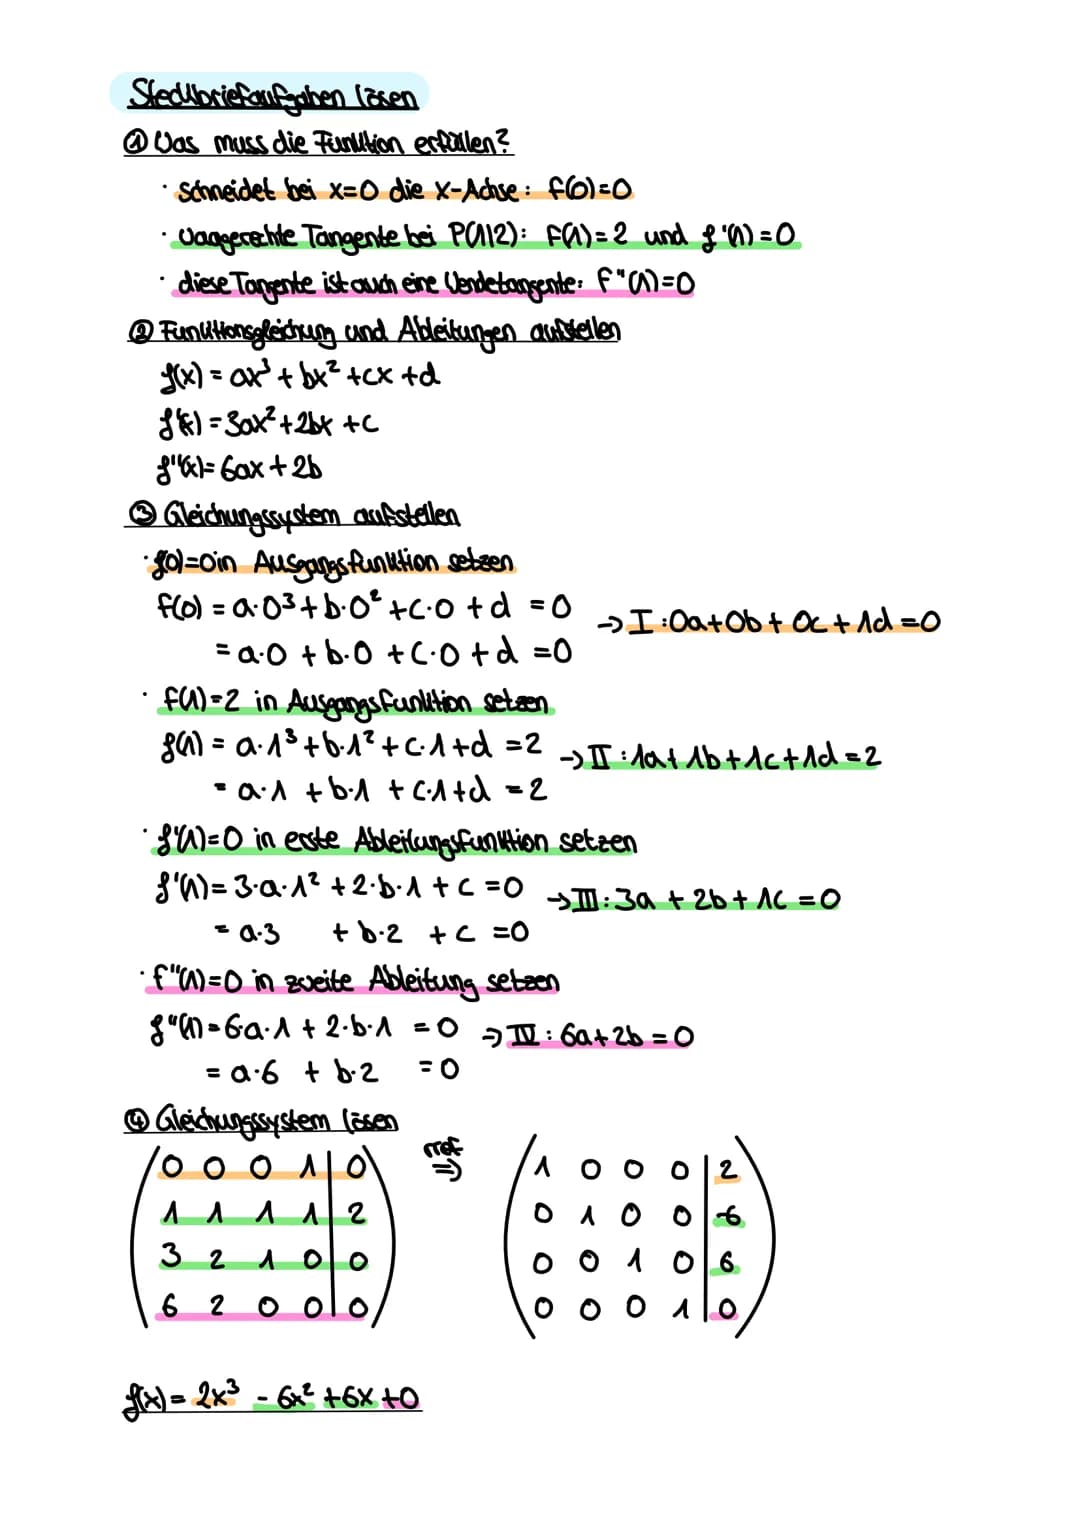 Steckbriefaufgaben lösen
① Was muss die Funktion erfüllen?
· Schneidet bei x=0 die x-Achse: f(0)=0
· Waagerechte Tangente bei P(1|2): f(1)=2 und f'(1)=0
· diese Tangente ist auch eine Wendetangente: f"(1)=0
② Funktionsgleichung und Ableitungen aufstellen
f(x) = ax³ + bx² +cx +d
f'(x) = 3ax² + 2bx +c
f"(x)= 6ax + 2b
③ Gleichungssystem aufstellen
· f(0)=0 in Ausgangsfunktion setzen
f(0) = a·0³ + b·0² +c·0 +d =0
= a·0 + b·0 +c·0 +d =0
→ I: 0a+0b+0c+1d=0
· f(1)=2 in Ausgangsfunktion setzen
f(1) = a·1³ +b·1² +c·1+d =2
= a·1 +b·1 +c·1+d =2
→ II: 1a+1b+1c+1d=2
· f'(1)=0 in erste Ableitungsfunktion setzen
f'(1)= 3·a·1² +2·b·1 +c =0
→ III: 3a + 2b + 1c =0
= a·3 + b·2 +c =0
· f"(1)=0 in zweite Ableitung setzen
f"(1)=6·a·1 + 2·b·1 =0
⇒ IV: 6a+2b =0
= a·6 + b·2 =0
④ Gleichungssystem lösen
rref
⇒
0 0 0 1 | 0
1 1 1 1 | 2
3 2 1 0 | 0
6 2 0 0 | 0
1 0 0 0 | 2
0 1 0 0 | -6
0 0 1 0 | 6
0 0 0 1 | 0
f(x) = 2x³ - 6x² +6x +0